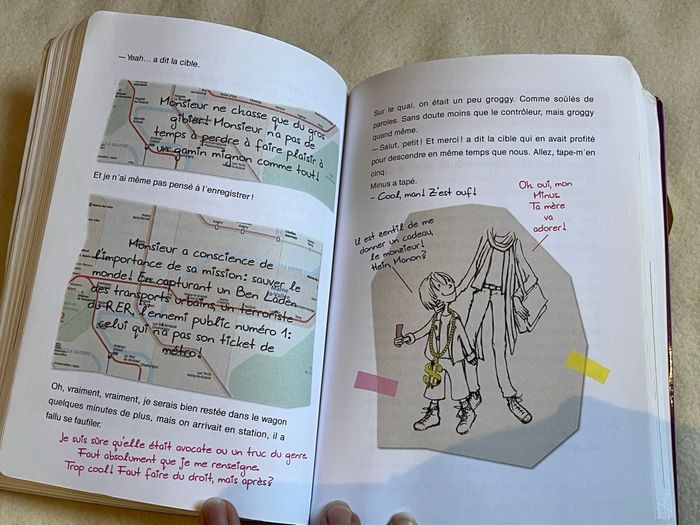 — Yeah… a dit la cible.
Monsieur ne chasse que du gros
gibier! Monsieur n'a pas de
temps à perdre à faire plaisir à
un gamin mignon comme tout!
Et je n'ai même pas pensé à l'enregistrer !
Monsieur a conscience de
l'importance de sa mission: sauver le
monde! En capturant un Ben Laden
des transports urbains, un terroriste
du RER, l'ennemi public numéro 1:
celui qui n'a pas son ticket de
métro!
Oh, vraiment, vraiment, je serais bien restée dans le wagon
quelques minutes de plus, mais on arrivait en station, il a
fallu se faufiler.
Je suis sûre qu'elle était avocate ou un truc du genre.
Faut absolument que je me renseigne.
Trop cool! Faut faire du droit, mais après?
Sur le quai, on était un peu groggy. Comme soûlés de
paroles. Sans doute moins que le contrôleur, mais groggy
quand même.
— Salut, petit ! Et merci ! a dit la cible qui en avait profité
pour descendre en même temps que nous. Allez, tape-m'en
cinq.
Minus a tapé.
– Cool, man! Z'est ouf!
Oh oui, mon
Minus.
Ta mère
va
adorer!
Il est zentil de me
donner un cadeau,
le monzieur!
Hein, Manon?